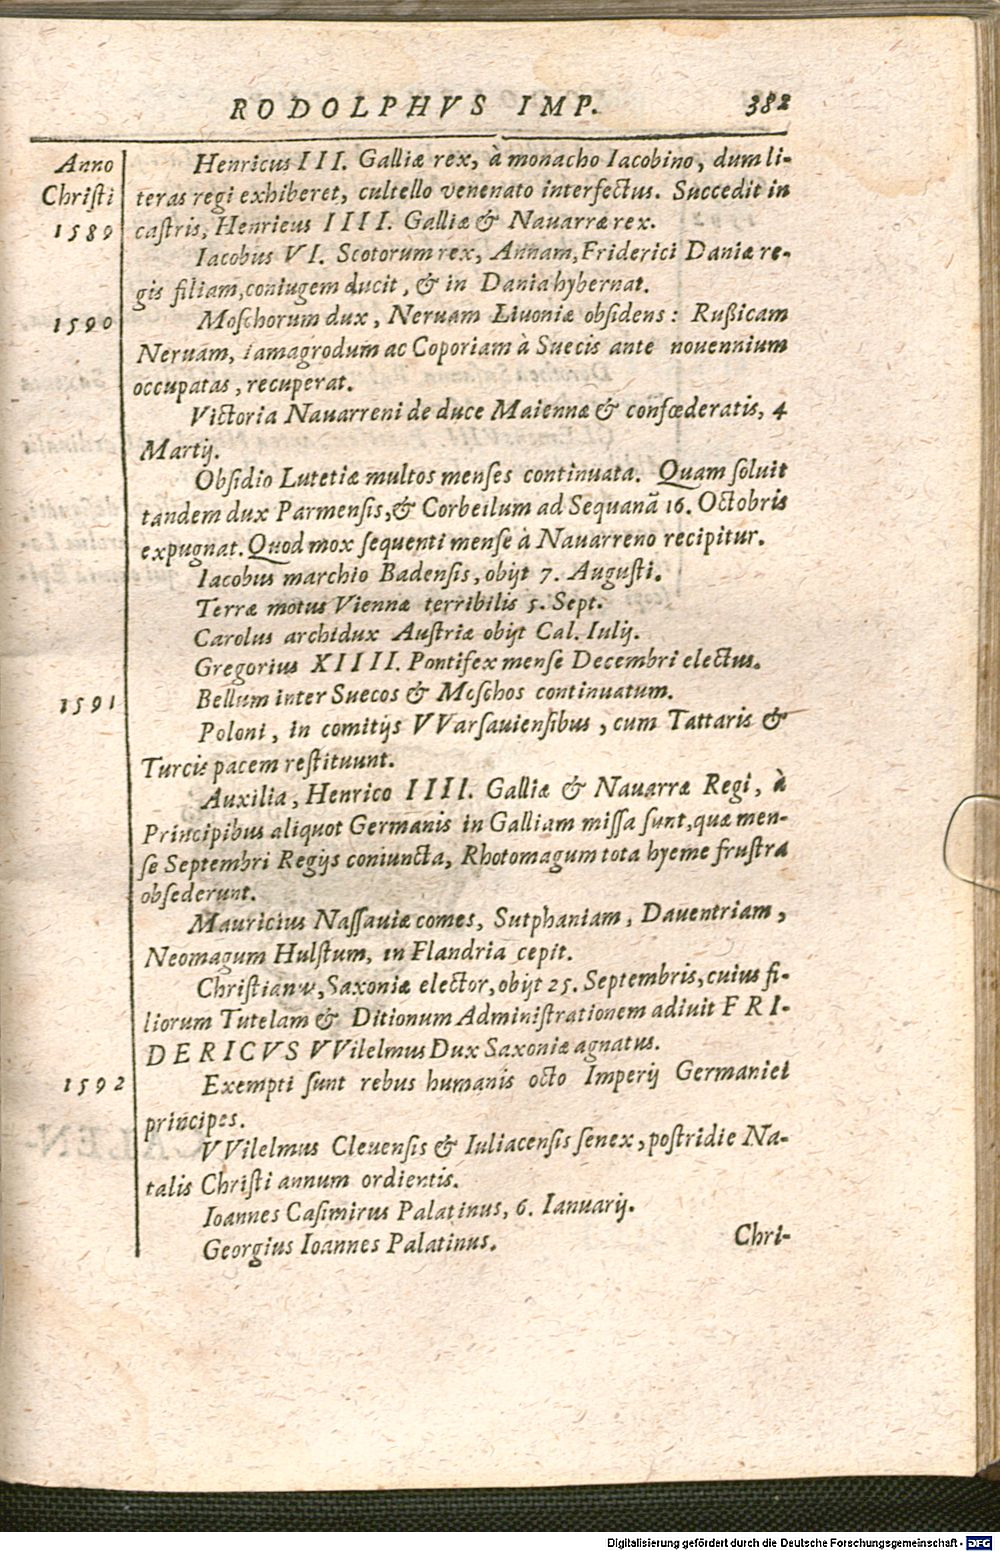 RODOLPHVS IMP. 382
Anno Henricus III. Galliæ rex, à monacho Iacobino, dum li-
Chriſti teras regi exhiberet, cultello venenato interfectus. Succedit in
1589 caſtris, Henricus IIII. Galliæ & Nauarræ rex.
Iacobus VI. Scotorum rex, Annam, Friderici Daniæ re-
gis filiam, coniugem ducit, & in Dania hybernat.
1590 Moſchorum dux, Neruam Liuoniæ obſidens: Rußicam
Neruam, Iamagrodum ac Coporiam à Suecis ante nouennium
occupatas, recuperat.
Victoria Nauarreni de duce Maiennæ & confœderatis, 4
Martij.
Obſidio Lutetiæ multos menſes continuata. Quam ſoluit
tandem dux Parmenſis, & Corbeilum ad Sequanã 16. Octobris
expugnat. Quod mox ſequenti menſe à Nauarreno recipitur.
Iacobus marchio Badenſis, obijt 7. Auguſti.
Terræ motus Viennæ terribilis 5. Sept.
Carolus archidux Auſtriæ obijt Cal. Iulij.
Gregorius XIIII. Pontifex menſe Decembri electus.
1591 Bellum inter Suecos & Moſchos continuatum.
Poloni, in comitijs VVarſauienſibus, cum Tattaris &
Turcis pacem reſtituunt.
Auxilia, Henrico IIII. Galliæ & Nauarræ Regi, à
Principibus aliquot Germanis in Galliam miſſa ſunt, quæ men-
ſe Septembri Regijs coniuncta, Rhotomagum tota hyeme fruſtra
obſederunt.
Mauricius Naſſauiæ comes, Sutphaniam, Dauentriam,
Neomagum Hulſtum, in Flandria cepit.
Chriſtianus, Saxoniæ elector, obijt 25. Septembris, cuius fi-
liorum Tutelam & Ditionum Adminiſtrationem adiuit FRI-
DERICVS VVilelmus Dux Saxoniæ agnatus.
1592 Exempti ſunt rebus humanis octo Imperij Germanici
principes.
VVilelmus Cleuenſis & Iuliacenſis ſenex, poſtridie Na-
talis Chriſti annum ordientis.
Ioannes Caſimirus Palatinus, 6. Ianuarij.
Georgius Ioannes Palatinus.
Chri-
Digitalisierung gefördert durch die Deutsche Forschungsgemeinschaft - DFG